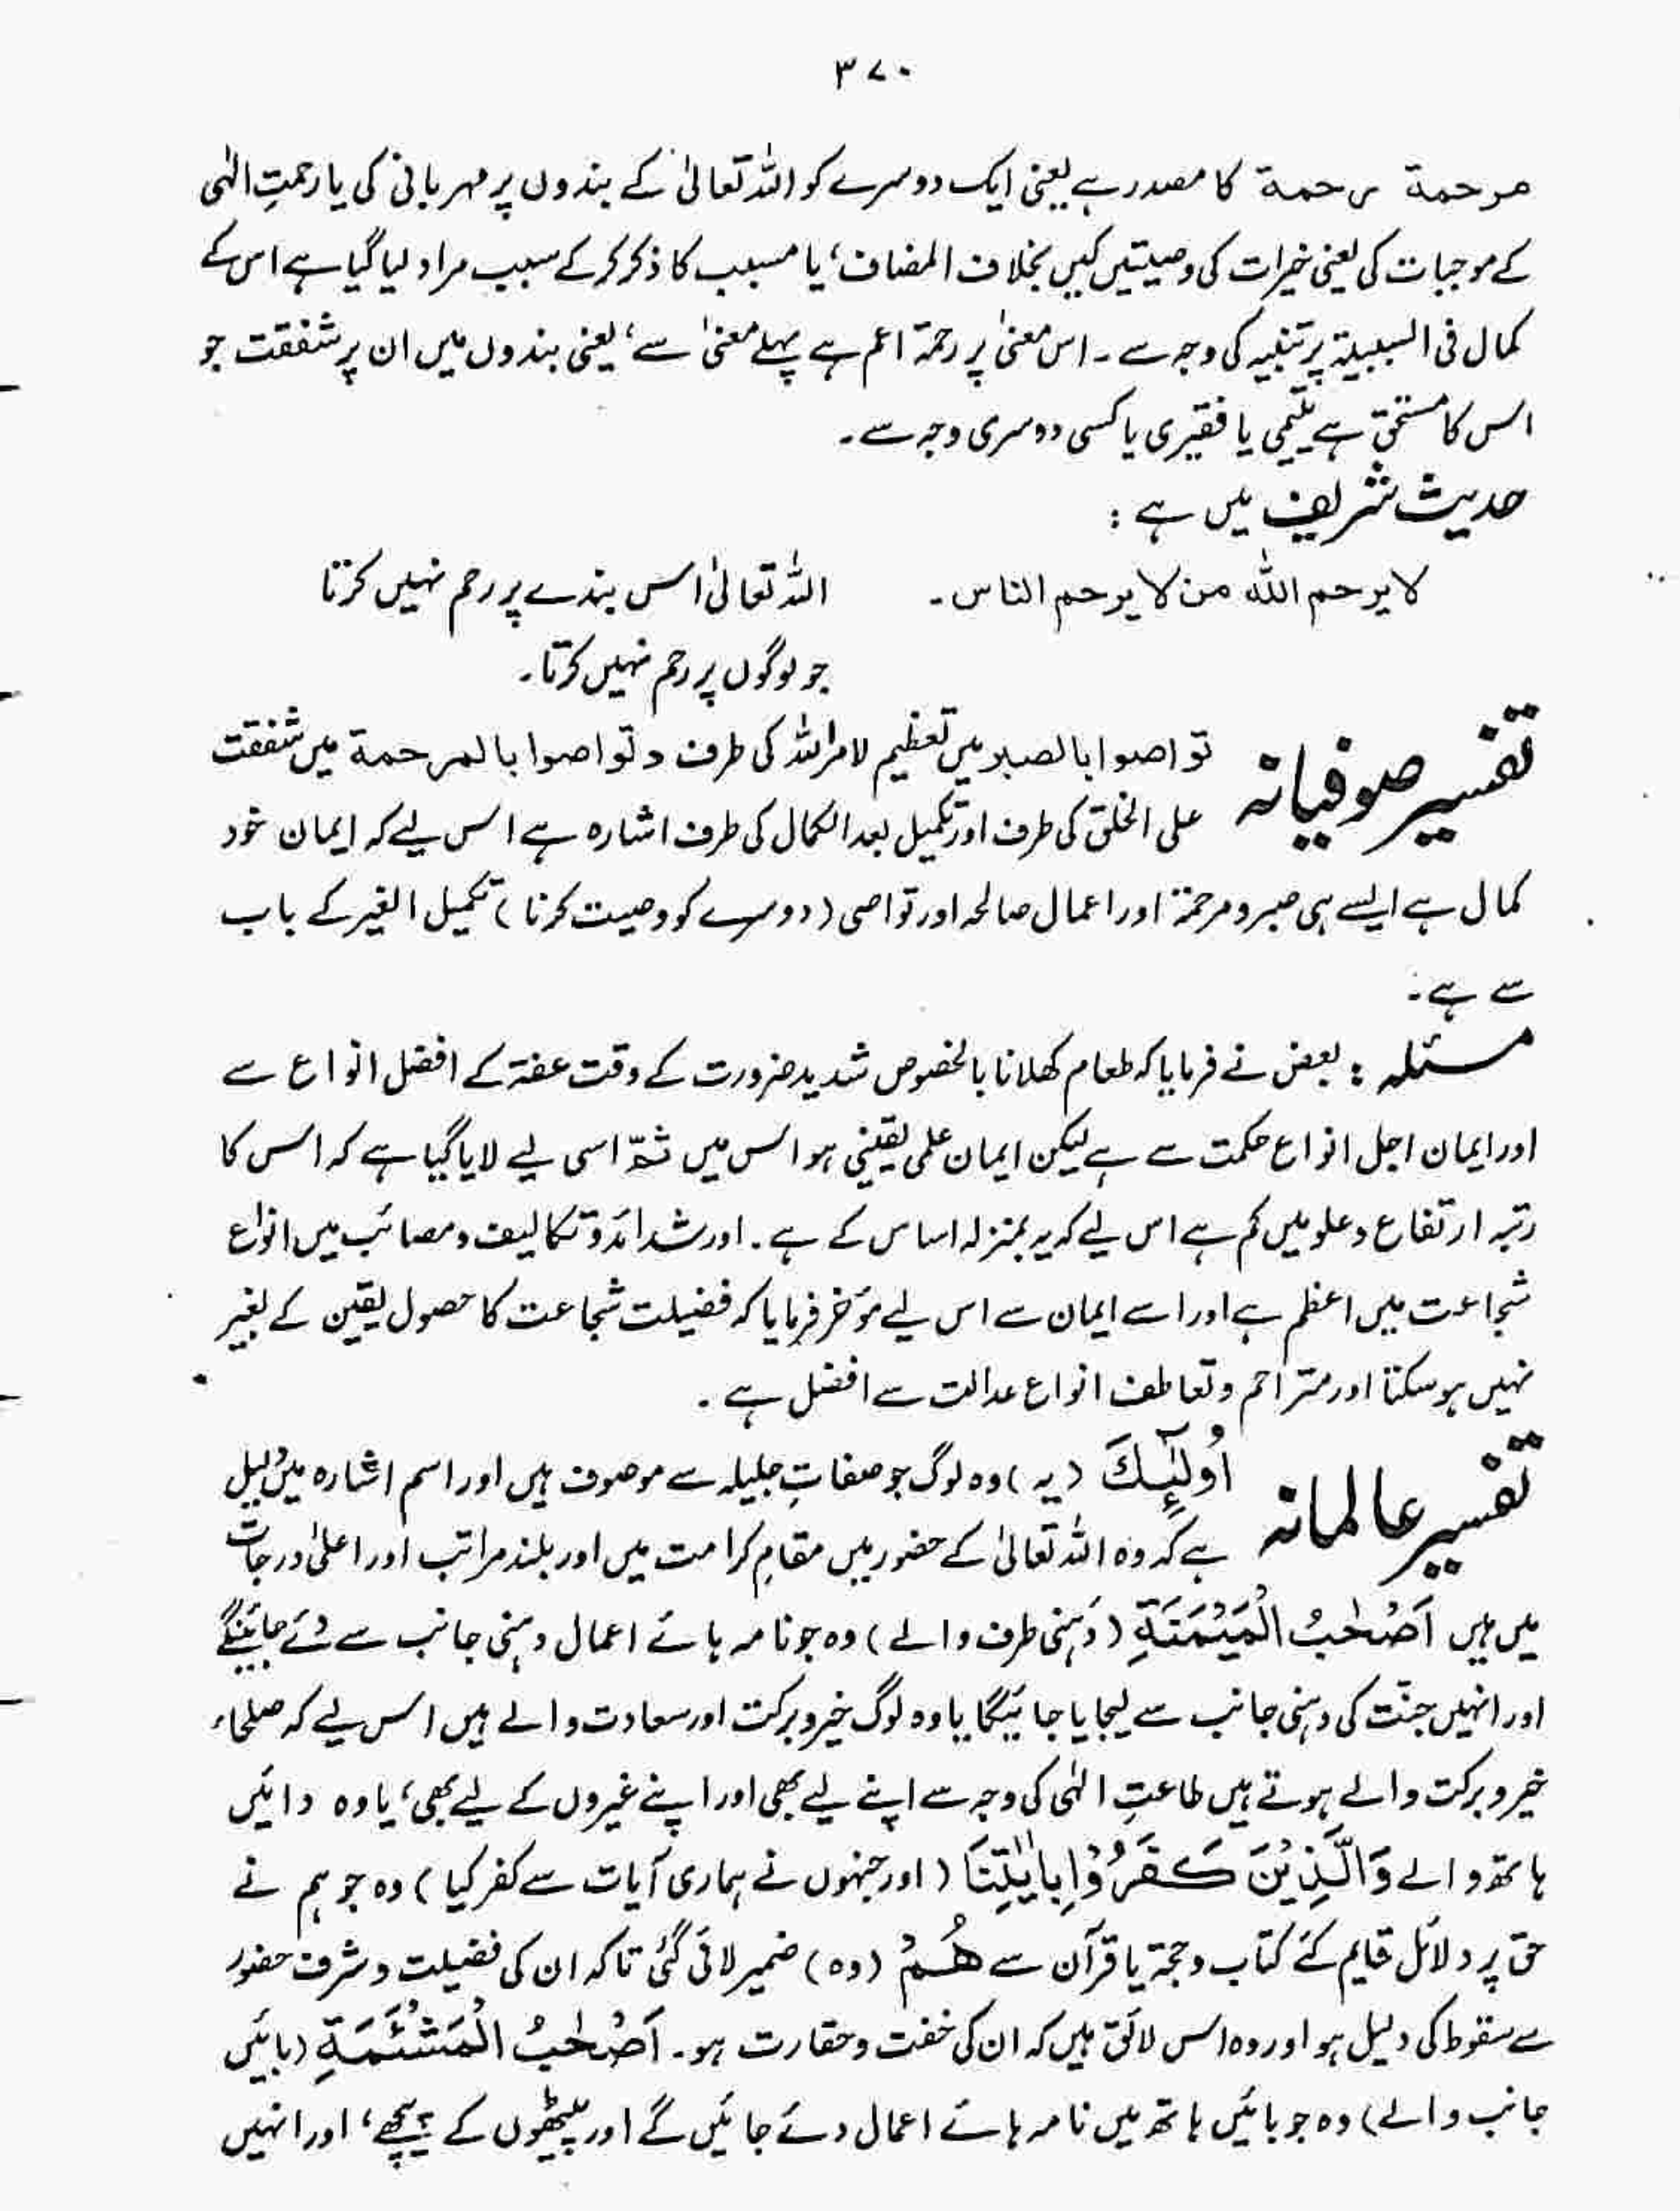 ۳۷۰
مرحمة رحمة کا مصدر ہے یعنی ایک دوسرے کو اللہ تعالیٰ کے بندوں پر مہربانی کی یا رحمتِ الٰہی
کے موجبات کی یعنی خیرات کی وصیتیں کیں بخلاف المضاف، یا مسبب کا ذکر کرکے سبب مراد لیا گیا ہے اس کے
کمال فی السببیۃ پر تنبیہ کی وجہ سے ۔ اس معنیٰ پر رحمۃ اعم ہے پہلے معنیٰ سے، یعنی بندوں میں ان پر شفقت جو
اس کا مستحق ہے یتیمی یا فقیری یا کسی دوسری وجہ سے ۔
حدیث شریف میں ہے :
لا یرحم اللّٰہ من لا یرحم الناس ۔ اللہ تعالیٰ اس بندے پر رحم نہیں کرتا
جو لوگوں پر رحم نہیں کرتا ۔
تفسیر صوفیانہ تواصوا بالصبر میں تعظیم لامر اللّٰہ کی طرف و تواصوا بالمرحمة میں شفقت
علی الخلق کی طرف اور تکمیل بعد الکمال کی طرف اشارہ ہے اس لیے کہ ایمان خود
کمال ہے ایسے ہی صبر و مرحمۃ اور اعمال صالحہ اور تواصی (دوسرے کو وصیت کرنا) تکمیل الغیر کے باب
سے ہے ۔
مسئلہ : بعض نے فرمایا کہ طعام کھلانا بالخصوص شدید ضرورت کے وقت عفۃ کے افضل انواع سے
اور ایمان اجل انواع حکمت سے ہے لیکن ایمان علمی یقینی ہو اس میں ثمّ اسی لیے لایا گیا ہے کہ اس کا
رتبہ ارتفاع و علو میں کم ہے اس لیے کہ یہ بمنزلہ اساس کے ہے ۔ اور شدائد و تکالیف و مصائب میں انواع
شجاعت میں اعظم ہے اور اسے ایمان سے اس لیے مؤخر فرمایا کہ فضیلت شجاعت کا حصول یقین کے بغیر
نہیں ہو سکتا اور متراحم و تعاطف انواع عدالت سے افضل ہے ۔
تفسیر عالمانہ اُولٰٓئِكَ (یہ) وہ لوگ جو صفاتِ جلیلہ سے موصوف ہیں اور اسم اشارہ میں دلیل
ہے کہ وہ اللہ تعالیٰ کے حضور میں مقامِ کرامت میں اور بلند مراتب اور اعلیٰ درجات
میں ہیں اَصْحٰبُ الْمَيْمَنَةِ (دَہنی طرف والے) وہ جو نامہ ہائے اعمال دہنی جانب سے دئے جائینگے
اور انہیں جنّت کی دہنی جانب سے لیجایا جائیگا یا وہ لوگ خیر و برکت اور سعادت والے ہیں اس لیے کہ صلحاء
خیر و برکت والے ہوتے ہیں طاعتِ الٰہی کی وجہ سے اپنے لیے بھی اور اپنے غیروں کے لیے بھی، یا وہ دائیں
ہاتھ والے وَالَّذِيْنَ كَفَرُوْا بِاٰيٰتِنَا (اور جنہوں نے ہماری آیات سے کفر کیا) وہ جو ہم نے
حق پر دلائل قایم کئے کتاب و حجۃ یا قرآن سے هُمْ (وہ) ضمیر لائی گئی تاکہ ان کی فضیلت و شرف حضور
سے سقوط کی دلیل ہو اور وہ اس لائق ہیں کہ ان کی خفت و حقارت ہو ۔ اَصْحٰبُ الْمَشْئَمَةِ (بائیں
جانب والے) وہ جو بائیں ہاتھ میں نامہ ہائے اعمال دئے جائیں گے اور پیٹھوں کے پیچھے، اور انہیں